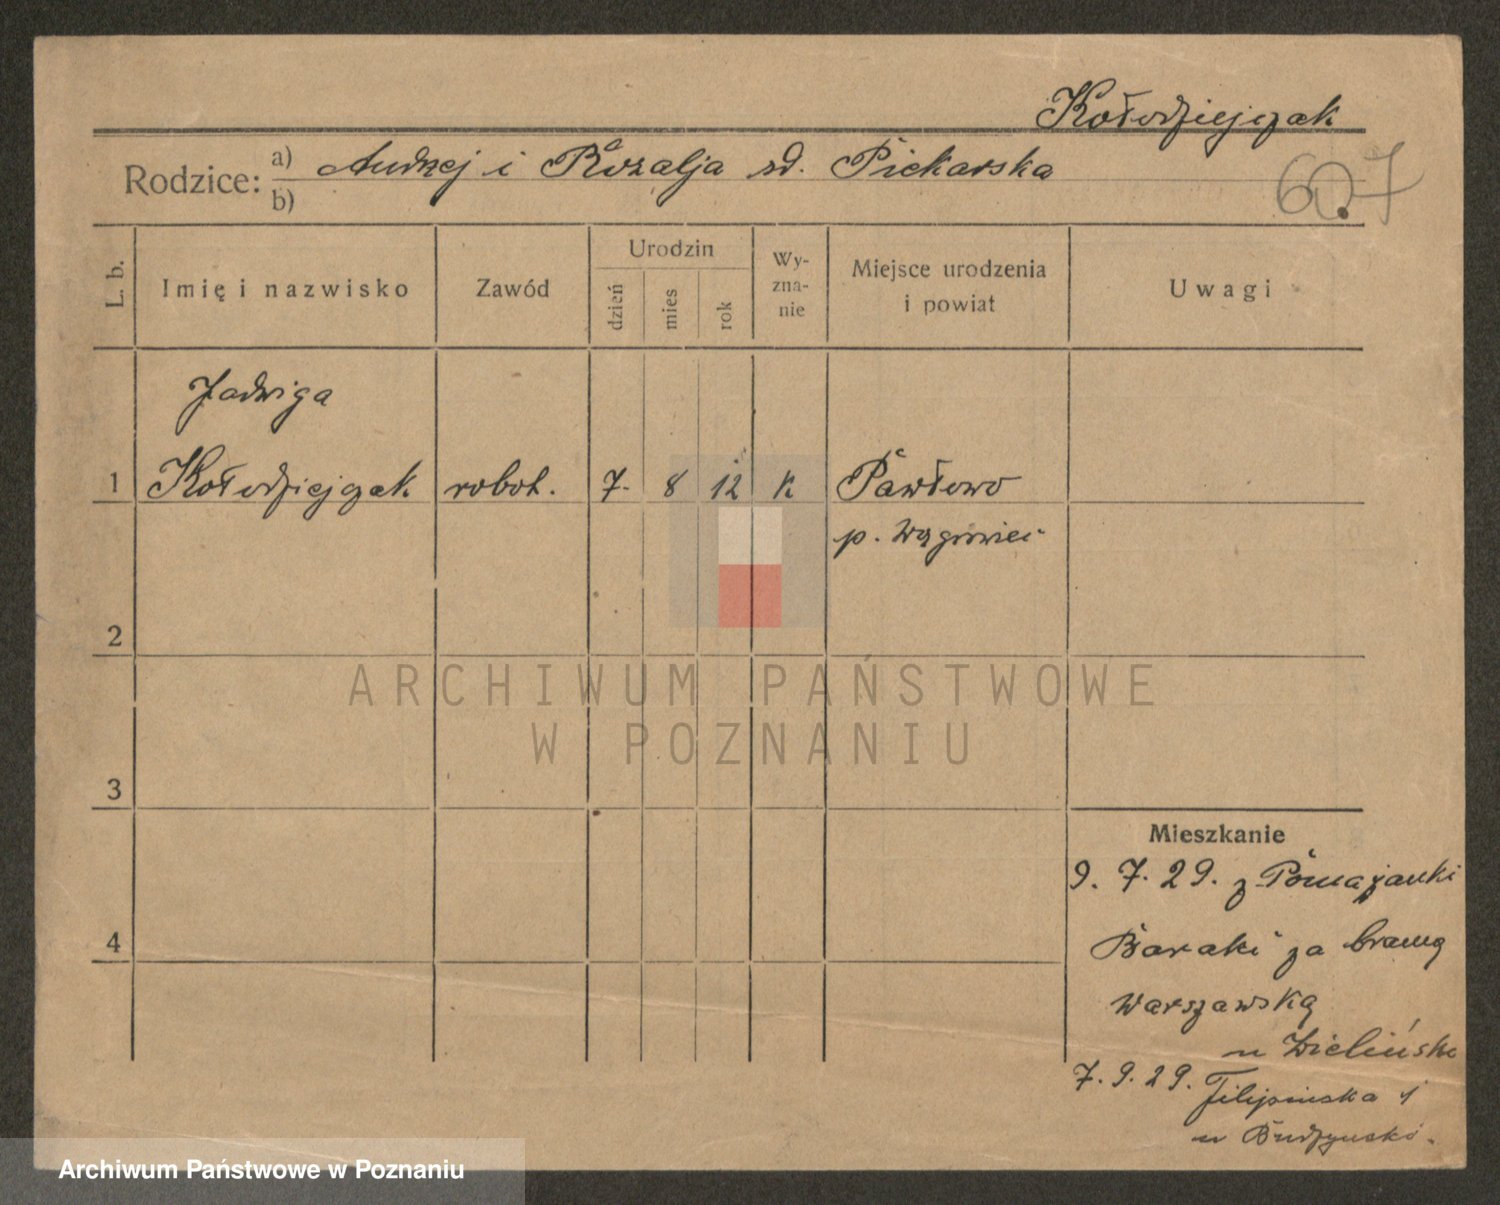 Kołodziejczak
Rodzice: a) Andrzej i Rozalja zd. Piekarska
b)
607
L. b.
Imię i nazwisko
Zawód
Urodzin
dzień
mies
rok
Wy-
zna-
nie
Miejsce urodzenia
i powiat
Uwagi
Jadwiga
1 Kołodziejczak robot. 7. 8 12 k Pawłowo
p. Wągrowiec
2
3
4
Mieszkanie
9. 7. 29. z
Baraki za bramą
Warszawską
u Zielińska
7. 9. 29. Filipińska 1
u
ARCHIWUM PAŃSTWOWE
W POZNANIU
Archiwum Państwowe w Poznaniu